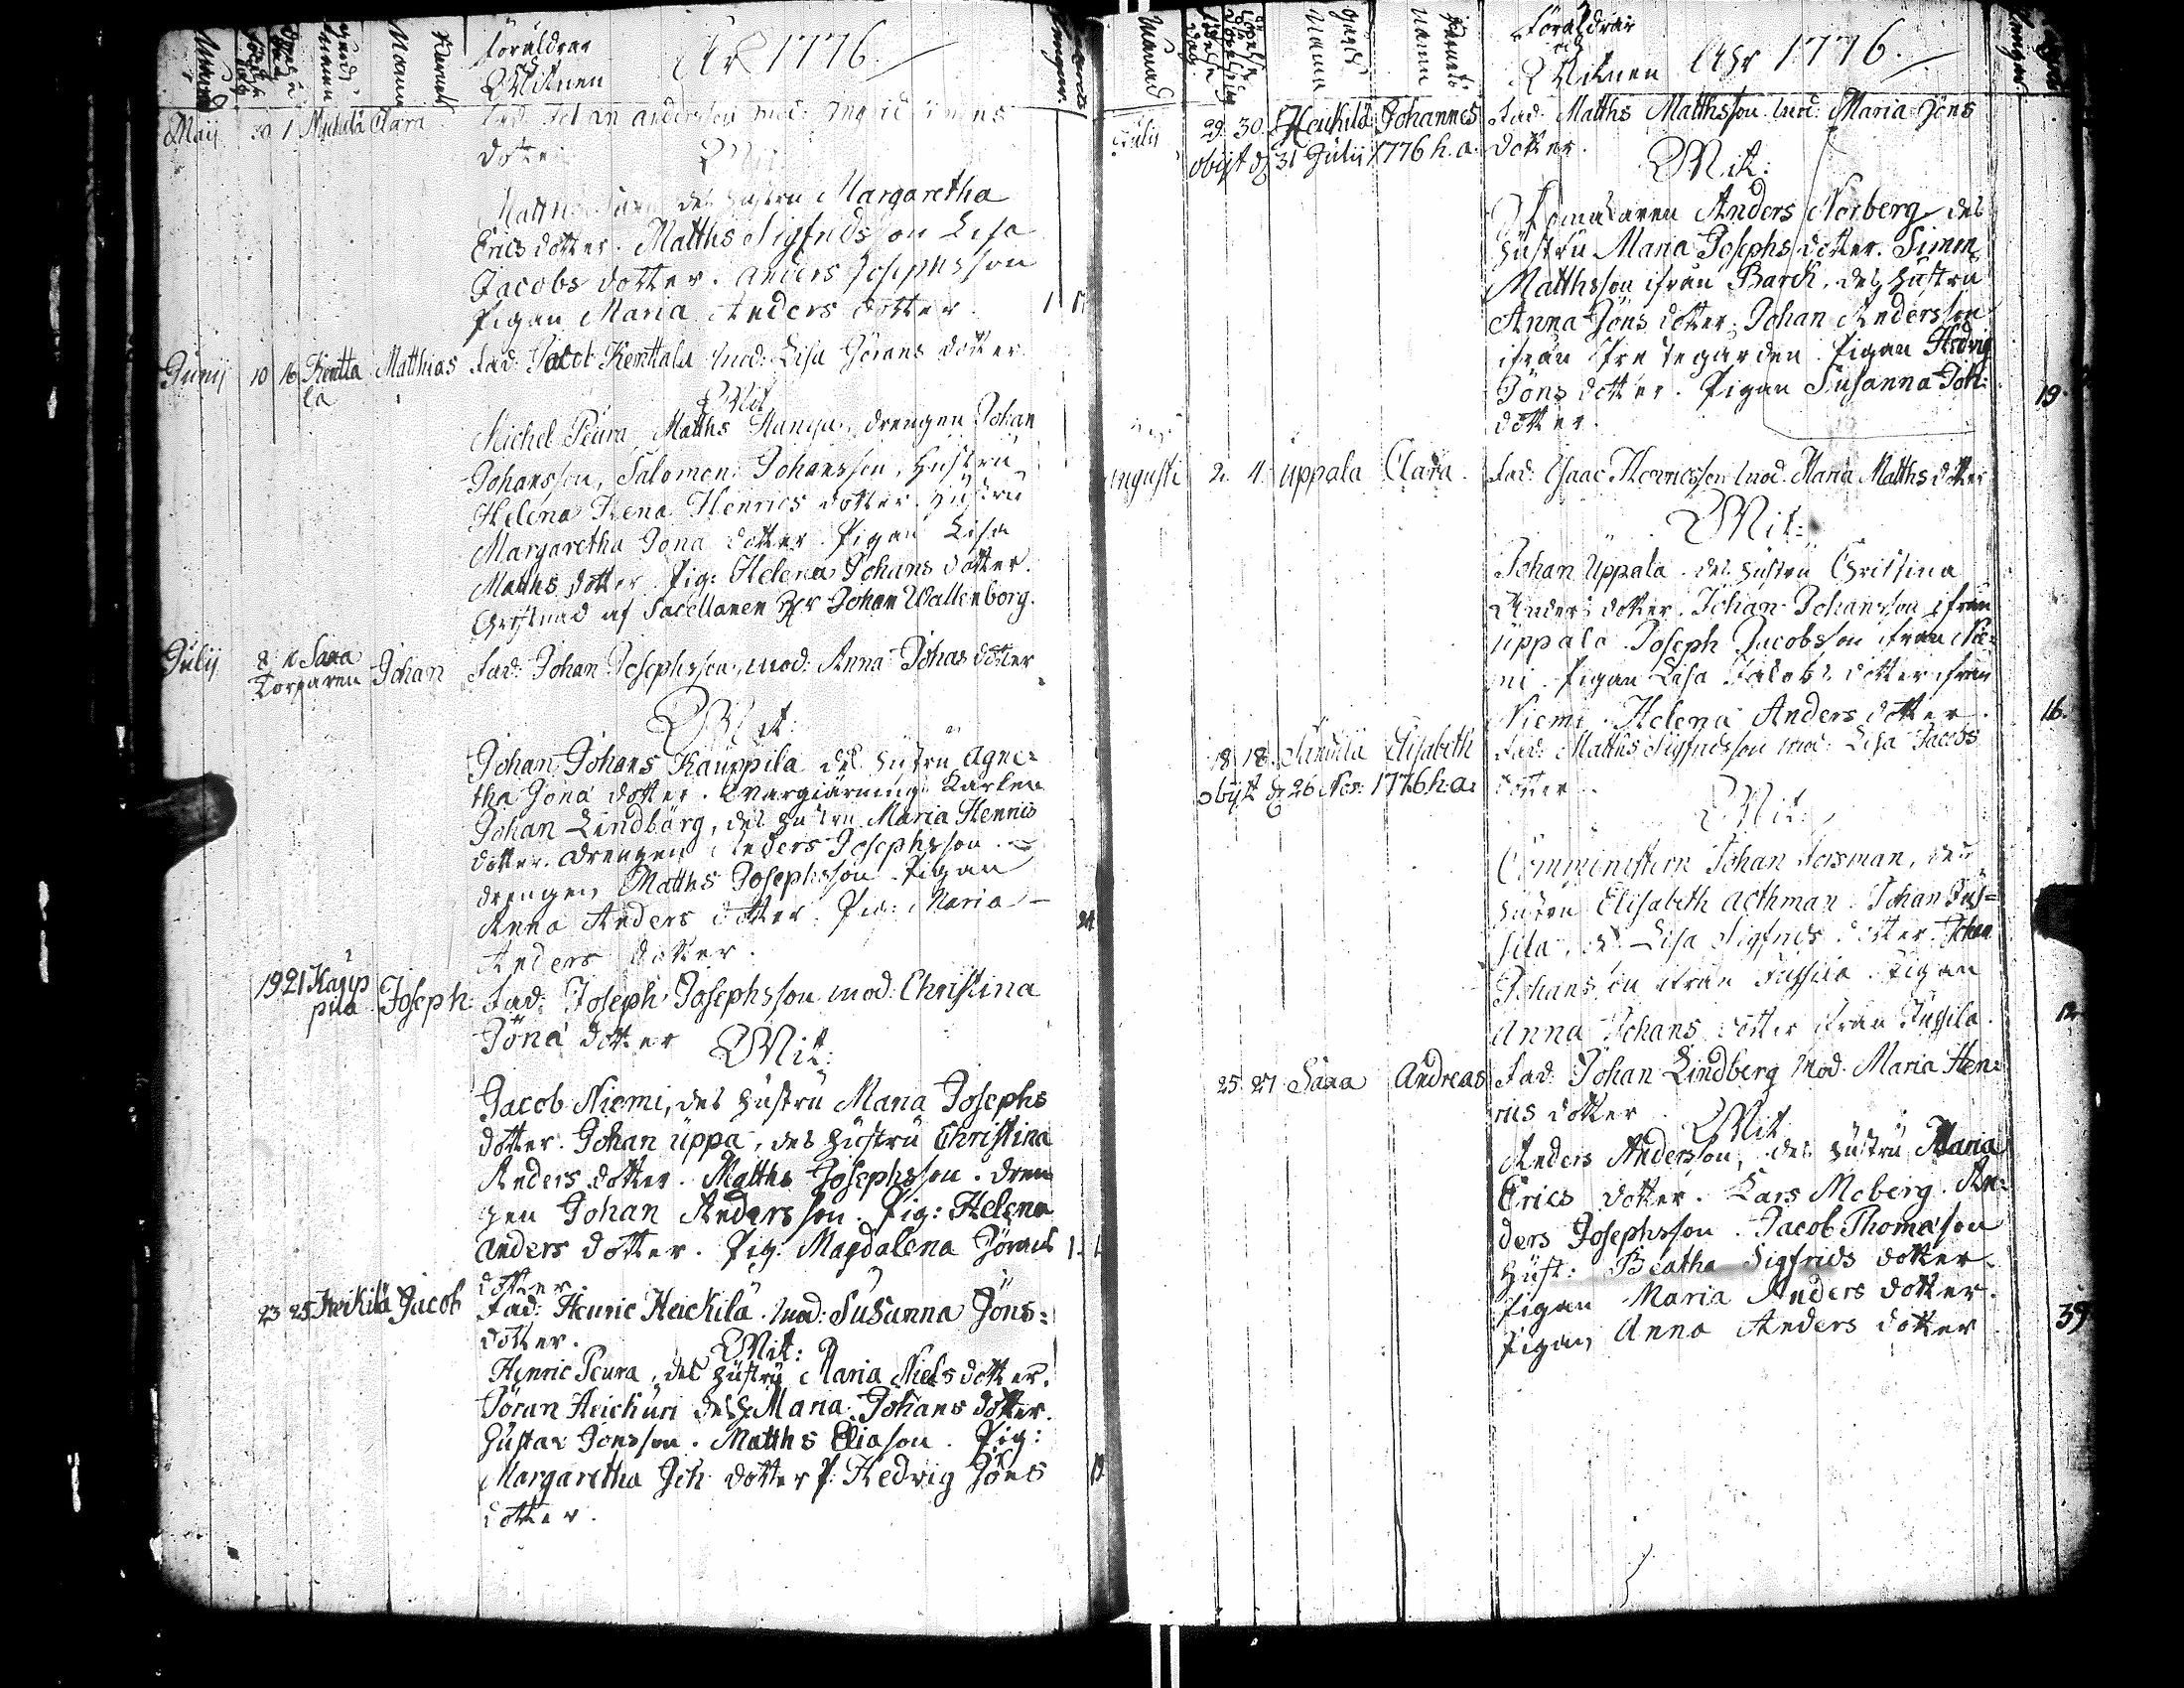 Månad
Gårds
Namn
Barnets
Föräldrar
Witnen
År 1776.
Maij 30 1 Clara Fad: Johan Andersson mod: Ingrid Simons
dotter Wit:
des hustru Margaretha
Erics dotter. Matths Sigfridsson Lisa
Jacobs dotter. Anders Josephsson
Pigan Maria Anders dotter. 1
Junij 10 16 Kentta Matthias Fad: Jacob Kenttala mod: Lisa Görans dotter
la
Wit
Michel Peura, Matths drengen Johan
Johansson, Salomon Johansson, Hustru
Helena Hena Henrics dotter. Hustru
Margaretha Jöna dotter Pigan Lisa
Matths dotter Pig: Helena Johans dotter.
Christnad af Sacellanen Hr Johan Wallenborg.
Julij 8 10 Sara Johan Fad: Johan Josephsson, mod: Anna Johas dotter
Torparen
Wit:
Johan Johans Kauppila des Hustru Agne=
tha Jöna dotter. Karlen
Johan Lindbärg, des Hustru Maria Henrics
dotter. Drengen Anders Josephsson.
drengen Matths Josephsson Pigan
Anna Anders dotter. Pig: Maria 24
Anders dotter.
19 21 Kaup Joseph Fad: Joseph Josephsson mod: Christina
pila
Jöna dotter Wit:
Jacob Niemi, des Hustru Maria Josephs
dotter. Johan Uppa, des Hustru Christina
Anders dotter. Matths Josephsson. Dren
gen Johan Andersson. Pig: Helena
Anders dotter. Pig: Magdalena Görans
dotter.
23 25 Heikilä Jacob Fad: Henric Heickilä. mod: Susanna Jöns=
dotter. Wit:
Henric Peura, des Hustru Maria Niels dotter.
Göran Heickuri des H: Maria Johans dotter.
Gustav Jönsson. Matths Eliason. Pig:
Margaretha Joh: dotter P: Hedvig Jöns
dotter.
Månad
Gårds
Namn
Barnets
Namn
Föräldrar
och
Witnen Åhr 1776.
Julij 29 30 Heickilä Johannes Fad: Matths Matthsson mod: Maria Jöns
obijt d: 31 Julij 1776 h.a. dotter.
Wit:
Anders Norberg des
Hustru Maria Josephs dotter. Simon
Matthsson ifrån Barck, des Hustru
Anna Jöns dotter. Johan Andersson
ifrån Pigan Hedvig
Jöns dotter. Pigan Susanna Joh: 19.
dotter.
Augusti 2. 4. Uppala Clara. Fad: Isaac Henricsson mod. Maria Matths dotter
Wit:
Johan Uppala des Hustru Christina
Anders dotter. Johan Johansson ifrån
Uppala Joseph Jacobsson ifrån Nie=
mi. Pigan Lisa Jacobs dotter ifrån
Niemi. Helena Anders dotter. 16.
18 18 Elisabeth Fad: Matths Sigfridsson mod: Lisa Jacobs
obijt d: 26 Nov: 1776 h.a: dotter
Wit:
Comministern Johan Forsman, des
Hustru Elisabeth Acthman. Johan Jus=
sila, Lisa Sigfrids dotter. Johan
Johansson ifrån Jussila. Pigan
Anna Johans dotter ifrån Jussila. 12
25 27 Sara Andreas Fad: Johan Lindberg mod. Maria Hen=
rics dotter. Wit
Anders Andersson, des Hustru Maria
Erics dotter. Lars Moberg. An=
ders Josephsson. Jacob Thomason
Hust: Beatha Sigfrids dotter.
Pigan Maria Anders dotter.
Pigan, Anna Anders dotter 39